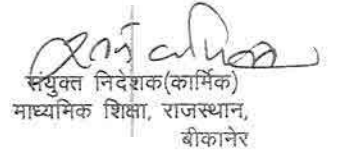 संयुक्त निदेशक(कार्मिक)
माध्यमिक शिक्षा, राजस्थान,
बीकानेर